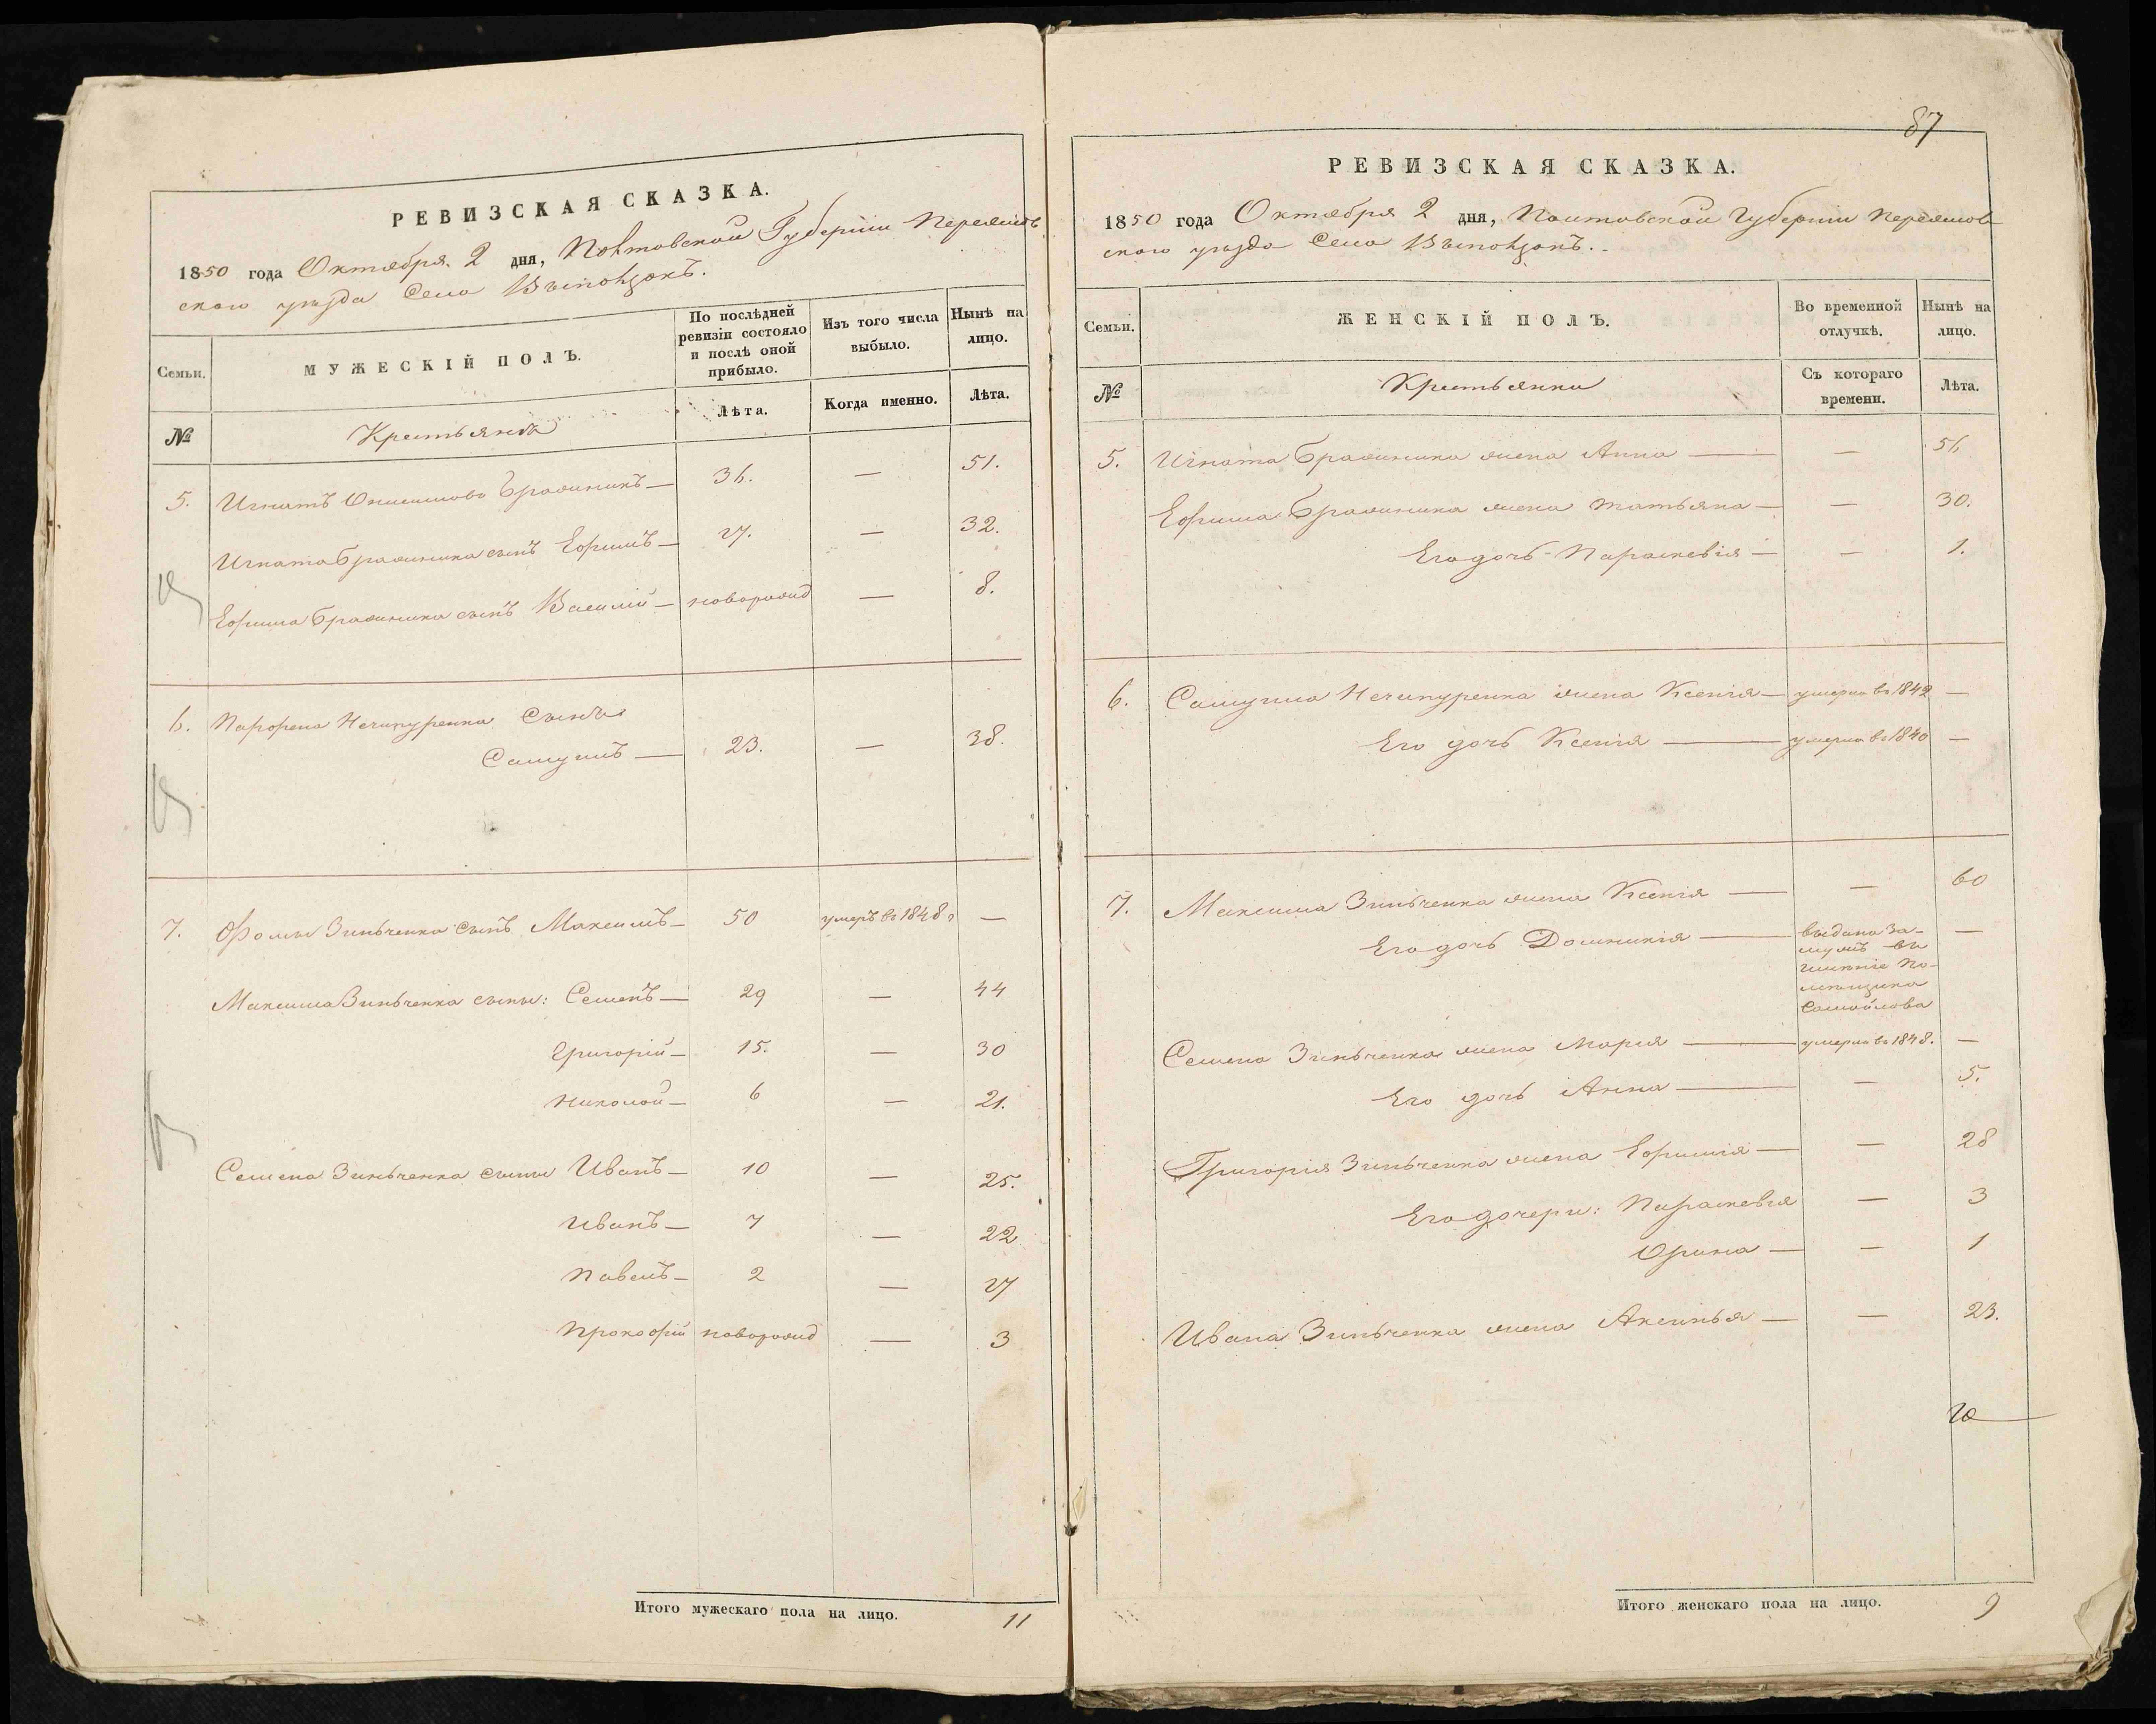 РЕВИЗСКАЯ СКАЗКА.
1850 года Октября 2 дня, Полтавской Губерніи Переяслов
скаго уѣзда Села Выползокъ.
Семьи. МУЖЕСКІЙ ПОЛЪ. По послѣдней ревизіи состояло и послѣ оной прибыло. Изъ того числа выбыло. Нынѣ на лицо.
№ Крестьянъ Лѣта. Когда именно. Лѣта.
5. Игнатъ Онисимовъ Бражникъ — 36. — 51.
Игната Бражника сынъ Ефимъ — 17. — 32.
Ефима Бражника сынъ Василій — новорожд — 8.
6. Парфена Нечипуренка Сынъ
Самуилъ — 23. — 38.
7. Фомы Зинъченка сынъ Максимъ — 50 умеръ въ 1848 г —
Максима Зинъченка сыны: Семенъ — 29 — 44
Григорій — 15. — 30
Николай — 6 — 21.
Семена Зинъченка сыны Иванъ — 10 — 25.
Иванъ — 7 — 22
Павелъ — 2 — 17
Прокофій новорожд — 3
Итого мужескаго пола на лицо. 11
87
РЕВИЗСКАЯ СКАЗКА.
1850 года Октября 2 дня, Полтавской Губерніи Переяслов
скаго уѣзда Села Выползокъ.
Семьи. ЖЕНСКІЙ ПОЛЪ. Во временной отлучкѣ. Нынѣ на лицо.
№ Крестьянки Съ котораго времени. Лѣта.
5. Игната Бражника жена Анна — — 56
Ефима Бражника жена Татьяна — — 30.
Его дочь Параскевія — — 1.
6. Самуила Нечипуренка жена Ксенія — умерла въ 1842 —
Его дочь Ксенія — умерла въ 1840 —
7. Максима Зинъченка жена Ксенія — — 60
Его дочь Домникія — выдана за- —
мужъ въ
имѣніе По-
мѣщика
Самойлова
Семена Зинъченка жена Марія — умерла въ 1848. —
Его дочь Анна — — 5.
Григорія Зинъченка жена Ефимія — — 28
Его дочери: Параскевія — 3
Орина — — 1
Ивана Зинъченка жена Аксинья — — 23.
Итого женскаго пола на лицо. 9